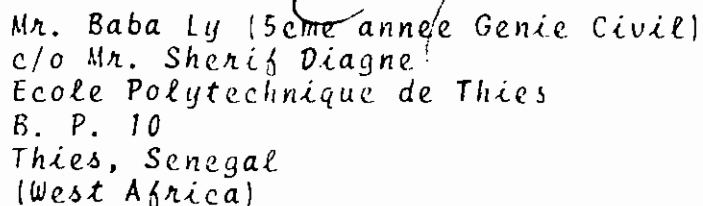 Mr. Baba Ly (5eme année Genie Civil)
c/o Mr. Sherif Diagne
Ecole Polytechnique de Thies
B. P. 10
Thies, Senegal
(West Africa)